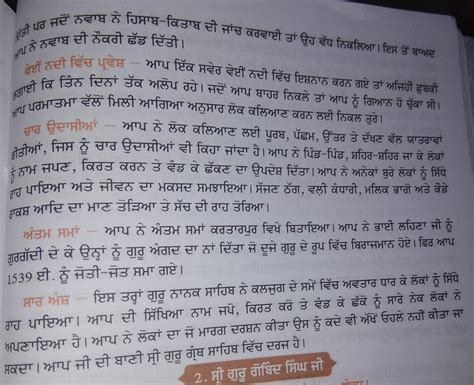 ਦਿੱਤੀ ਪਰ ਜਦੋਂ ਨਵਾਬ ਨੇ ਹਿਸਾਬ-ਕਿਤਾਬ ਦੀ ਜਾਂਚ ਕਰਵਾਈ ਤਾਂ ਉਹ ਵੱਧ ਨਿਕਲਿਆ। ਇਸ ਤੋਂ ਬਾਅਦ
ਆਪ ਨੇ ਨਵਾਬ ਦੀ ਨੌਕਰੀ ਛੱਡ ਦਿੱਤੀ।
ਵੇਈਂ ਨਦੀ ਵਿੱਚ ਪ੍ਰਵੇਸ਼ – ਆਪ ਇੱਕ ਸਵੇਰ ਵੇਈਂ ਨਦੀ ਵਿੱਚ ਇਸ਼ਨਾਨ ਕਰਨ ਗਏ ਤਾਂ ਅਜਿਹੀ ਡੁਬਕੀ
ਲਗਾਈ ਕਿ ਤਿੰਨ ਦਿਨਾਂ ਤੱਕ ਅਲੋਪ ਰਹੇ। ਜਦੋਂ ਆਪ ਬਾਹਰ ਨਿਕਲੇ ਤਾਂ ਆਪ ਨੂੰ ਗਿਆਨ ਹੋ ਚੁੱਕਾ ਸੀ।
ਆਪ ਪਰਮਾਤਮਾ ਵੱਲੋਂ ਮਿਲੀ ਆਗਿਆ ਅਨੁਸਾਰ ਲੋਕ ਕਲਿਆਣ ਕਰਨ ਲਈ ਨਿਕਲ ਤੁਰੇ।
ਚਾਰ ਉਦਾਸੀਆਂ – ਆਪ ਨੇ ਲੋਕ ਕਲਿਆਣ ਲਈ ਪੂਰਬ, ਪੱਛਮ, ਉੱਤਰ ਤੇ ਦੱਖਣ ਵੱਲ ਯਾਤਰਾਵਾਂ
ਕੀਤੀਆਂ, ਜਿਸ ਨੂੰ ਚਾਰ ਉਦਾਸੀਆਂ ਵੀ ਕਿਹਾ ਜਾਂਦਾ ਹੈ। ਆਪ ਨੇ ਪਿੰਡ-ਪਿੰਡ, ਸ਼ਹਿਰ-ਸ਼ਹਿਰ ਜਾ ਕੇ ਲੋਕਾਂ
ਨੂੰ ਨਾਮ ਜਪਣ, ਕਿਰਤ ਕਰਨ ਤੇ ਵੰਡ ਕੇ ਛੱਕਣ ਦਾ ਉਪਦੇਸ਼ ਦਿੱਤਾ। ਆਪ ਨੇ ਅਨੇਕਾਂ ਬੁਰੇ ਲੋਕਾਂ ਨੂੰ ਸਿੱਧੇ
ਰਾਹ ਪਾਇਆ ਅਤੇ ਜੀਵਨ ਦਾ ਮਕਸਦ ਸਮਝਾਇਆ। ਸੱਜਣ ਠੱਗ, ਵਲੀ ਕੰਧਾਰੀ, ਮਲਿਕ ਭਾਗੋ ਅਤੇ ਕੌਡੇ
ਰਾਕਸ਼ ਆਦਿ ਦਾ ਮਾਣ ਤੋੜਿਆ ਤੇ ਸੱਚ ਦੀ ਰਾਹ ਤੋਰਿਆ।
ਅੰਤਮ ਸਮਾਂ – ਆਪ ਨੇ ਅੰਤਮ ਸਮਾਂ ਕਰਤਾਰਪੁਰ ਵਿਖੇ ਬਿਤਾਇਆ। ਆਪ ਨੇ ਭਾਈ ਲਹਿਣਾ ਜੀ ਨੂੰ
ਗੁਰਗੱਦੀ ਦੇ ਕੇ ਉਨ੍ਹਾਂ ਨੂੰ ਗੁਰੂ ਅੰਗਦ ਦਾ ਨਾਂ ਦਿੱਤਾ ਜੋ ਦੂਜੇ ਗੁਰੂ ਦੇ ਰੂਪ ਵਿੱਚ ਬਿਰਾਜਮਾਨ ਹੋਏ। ਫਿਰ ਆਪ
1539 ਈ. ਨੂੰ ਜੋਤੀ-ਜੋਤ ਸਮਾ ਗਏ।
ਸਾਰ ਅੰਸ਼ – ਇਸ ਤਰ੍ਹਾਂ ਗੁਰੂ ਨਾਨਕ ਸਾਹਿਬ ਨੇ ਕਲਜੁਗ ਦੇ ਸਮੇਂ ਵਿੱਚ ਅਵਤਾਰ ਧਾਰ ਕੇ ਲੋਕਾਂ ਨੂੰ ਸਿੱਧੇ
ਰਾਹ ਪਾਇਆ। ਆਪ ਦੀ ਸਿੱਖਿਆ ਨਾਮ ਜਪੋ, ਕਿਰਤ ਕਰੋ ਤੇ ਵੰਡ ਕੇ ਛੱਕੋ ਨੂੰ ਸਾਰੇ ਲੋਕਾਂ ਨੇ
ਅਪਣਾਇਆ ਹੈ। ਆਪ ਨੇ ਲੋਕਾਂ ਦਾ ਜੋ ਮਾਰਗ ਦਰਸ਼ਨ ਕੀਤਾ ਉਸ ਨੂੰ ਕਦੇ ਵੀ ਅੱਖੋਂ ਓਹਲੇ ਨਹੀਂ ਕੀਤਾ ਜਾ
ਸਕਦਾ। ਆਪ ਜੀ ਦੀ ਬਾਣੀ ਸ੍ਰੀ ਗੁਰੂ ਗ੍ਰੰਥ ਸਾਹਿਬ ਵਿੱਚ ਦਰਜ ਹੈ।
2. ਸ੍ਰੀ ਗੁਰੂ ਗੋਬਿੰਦ ਸਿੰਘ ਜੀ